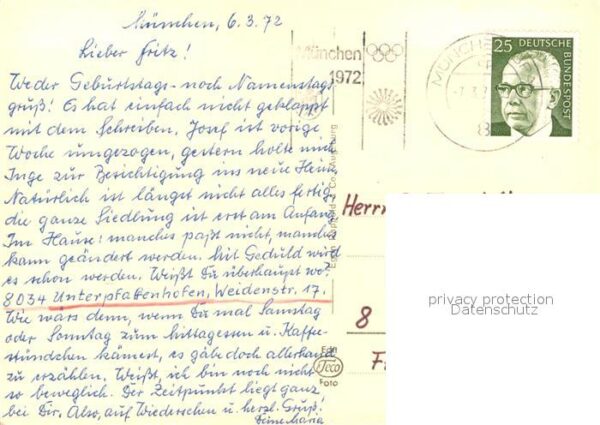 München, 6.3.72
Lieber Fritz!
Weder Geburtstags- noch Namenstags
gruß! Es hat einfach nicht geklappt
mit dem Schreiben. Josef ist vorige
Woche umgezogen, gestern holte mich
Inge zur Besichtigung ins neue Heim.
Natürlich ist längst nicht alles fertig,
die ganze Siedlung ist erst am Anfang.
Im Hause! manches paßt nicht, manches
kann geändert werden. Mit Geduld wird
es schon werden. Weißt Du überhaupt wo?
8034 Unterpfaffenhofen, Weidenstr. 17.
Wie wärs denn, wenn Du mal Samstag
oder Sonntag zum Mittagessen u. Kaffee-
stündchen kämest, es gäbe doch allerhand
zu erzählen. Weißt, ich bin noch nicht
so beweglich. Der Zeitpunkt liegt ganz
bei Dir. Also, auf Wiedersehen u. herzl. Gruß!
Deine Maria
München
1972
MÜNCHE
25 DEUTSCHE
BUNDESPOST
Herrn
8
F
privacy protection
Datenschutz
Foto